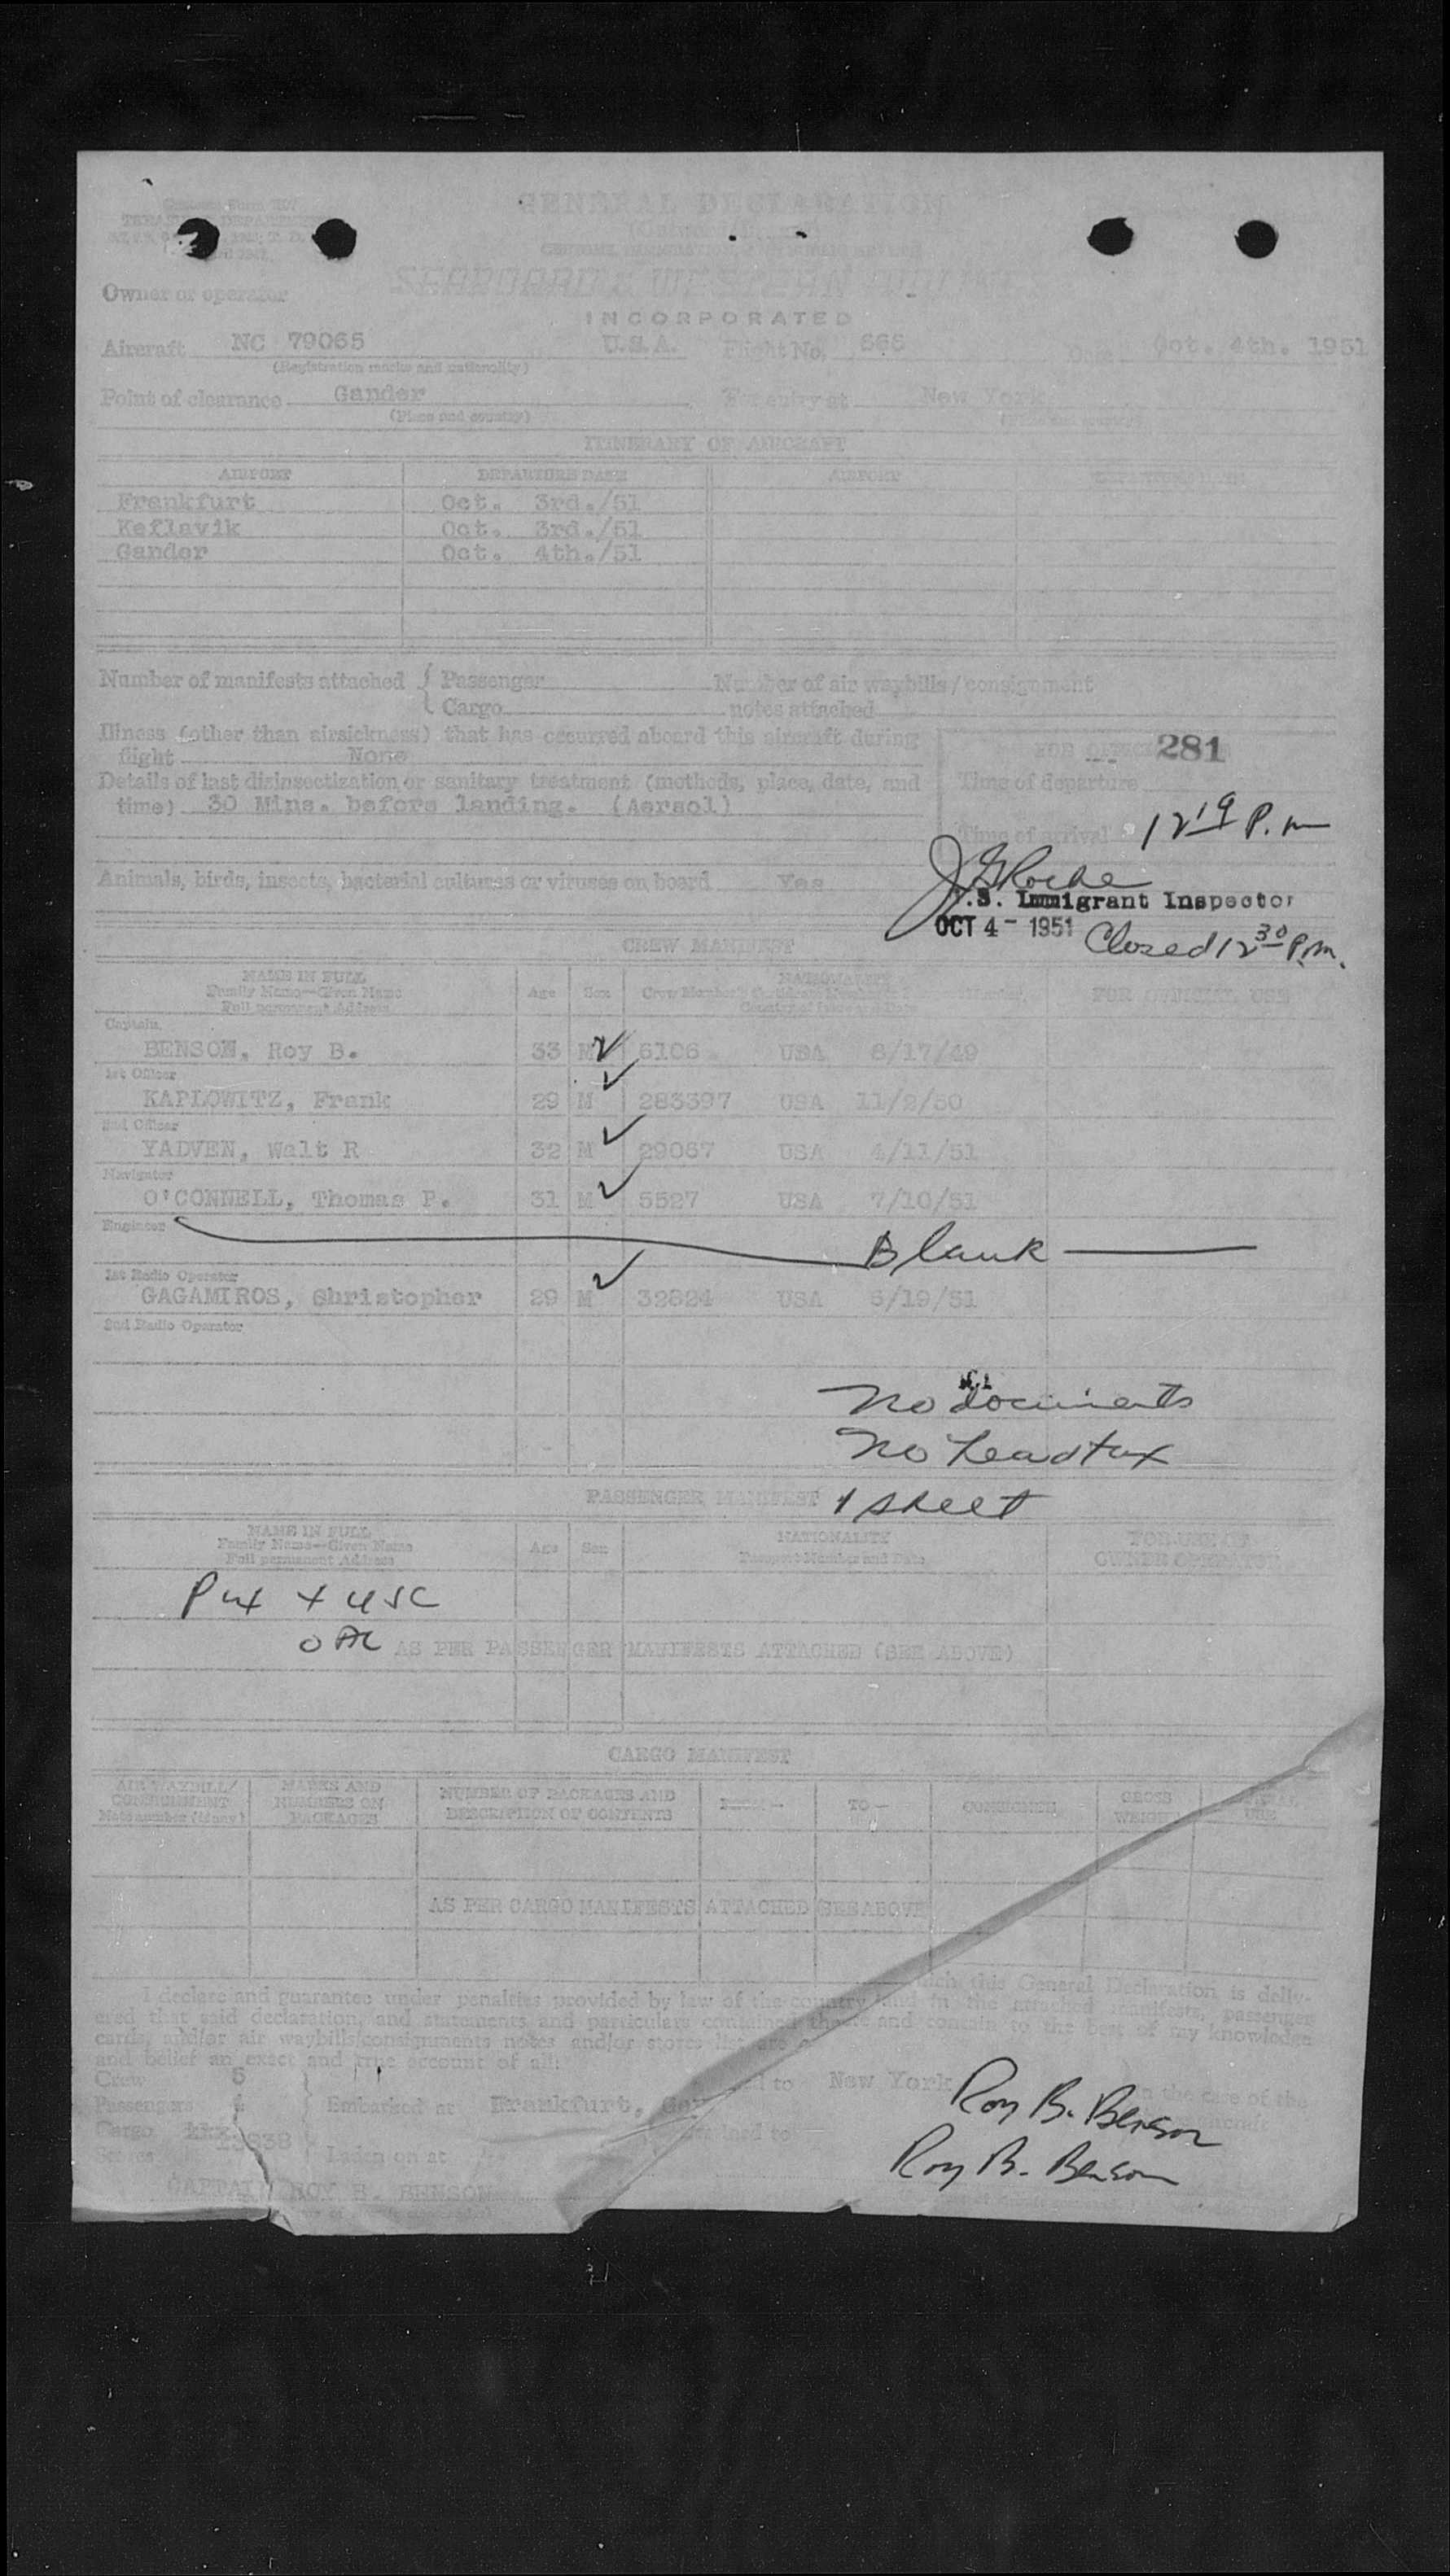 GENERAL DECLARATION
SEABOARD & WESTERN AIRLINES
Owner or operator
INCORPORATED
Aircraft NC 79065 U.S.A. Flight No. 666 Date Oct. 4th. 1951
(Registration marks and nationality)
Point of clearance Gander For entry at New York
(Place and country) (Place and country)
ITINERARY OF AIRCRAFT
AIRPORT DEPARTURE DATE AIRPORT
Frankfurt Oct. 3rd./51
Keflavik Oct. 3rd./51
Gander Oct. 4th./51
Number of manifests attached { Passenger Number of air waybills / consignment
Cargo notes attached
Illness (other than airsickness) that has occurred aboard this aircraft during
flight None
FOR OFFICIAL 281
Details of last disinsectization or sanitary treatment (methods, place, date, and
time) 30 Mins. before landing. (Aersol)
Time of departure
Time of arrival 12 19 P.m
Animals, birds, insects, bacterial cultures or viruses on board Yes
J G Roche
U.S. Immigrant Inspector
OCT 4 - 1951 Closed 12 30 P.m.
CREW MANIFEST
NAME IN FULL NATIONALITY
Family Name—Given Name Age Sex FOR OFFICIAL USE
Full permanent Address
Captain
BENSON, Roy B. 33 M 5106 USA 8/17/49
1st Officer
KAPLOWITZ, Frank 29 M 283397 USA 11/2/50
2nd Officer
YADVEN, Walt R 32 M 29067 USA 4/11/51
Navigator
O'CONNELL, Thomas P. 31 M 5527 USA 7/10/51
Engineer Blank
1st Radio Operator
GAGAMIROS, Christopher 29 M 32824 USA 5/19/51
2nd Radio Operator
No documents
No Headtax
PASSENGER MANIFEST 1 sheet
NAME IN FULL NATIONALITY FOR USE OF
Family Name—Given Name Age Sex Passport Number and Date OWNER OPERATOR
Full permanent Address
USC
AS PER PASSENGER MANIFESTS ATTACHED (SEE ABOVE)
CARGO MANIFEST
AIR WAYBILL/ MARKS AND NUMBER OF PACKAGES AND FROM— TO— CONSIGNEE GROSS
CONSIGNMENT NUMBERS ON DESCRIPTION OF CONTENTS WEIGHT USE
Note number (if any) PACKAGES
AS PER CARGO MANIFESTS ATTACHED SEE ABOVE
I declare and guarantee under penalties provided by law of the country which this General Declaration is deliv-
ered that said declaration, and statements and particulars contained and in the attached manifests, passenger
cards, and/or air waybills/consignments notes and/or stores list are and contain to the best of my knowledge
and belief an exact and true account of all:
Crew 5
Passengers Embarked at Frankfurt, to New York in the case of the
Cargo aircraft
Stores Laden on at
Roy B. Benson
Roy B. Benson
CAPTAIN ROY B. BENSON